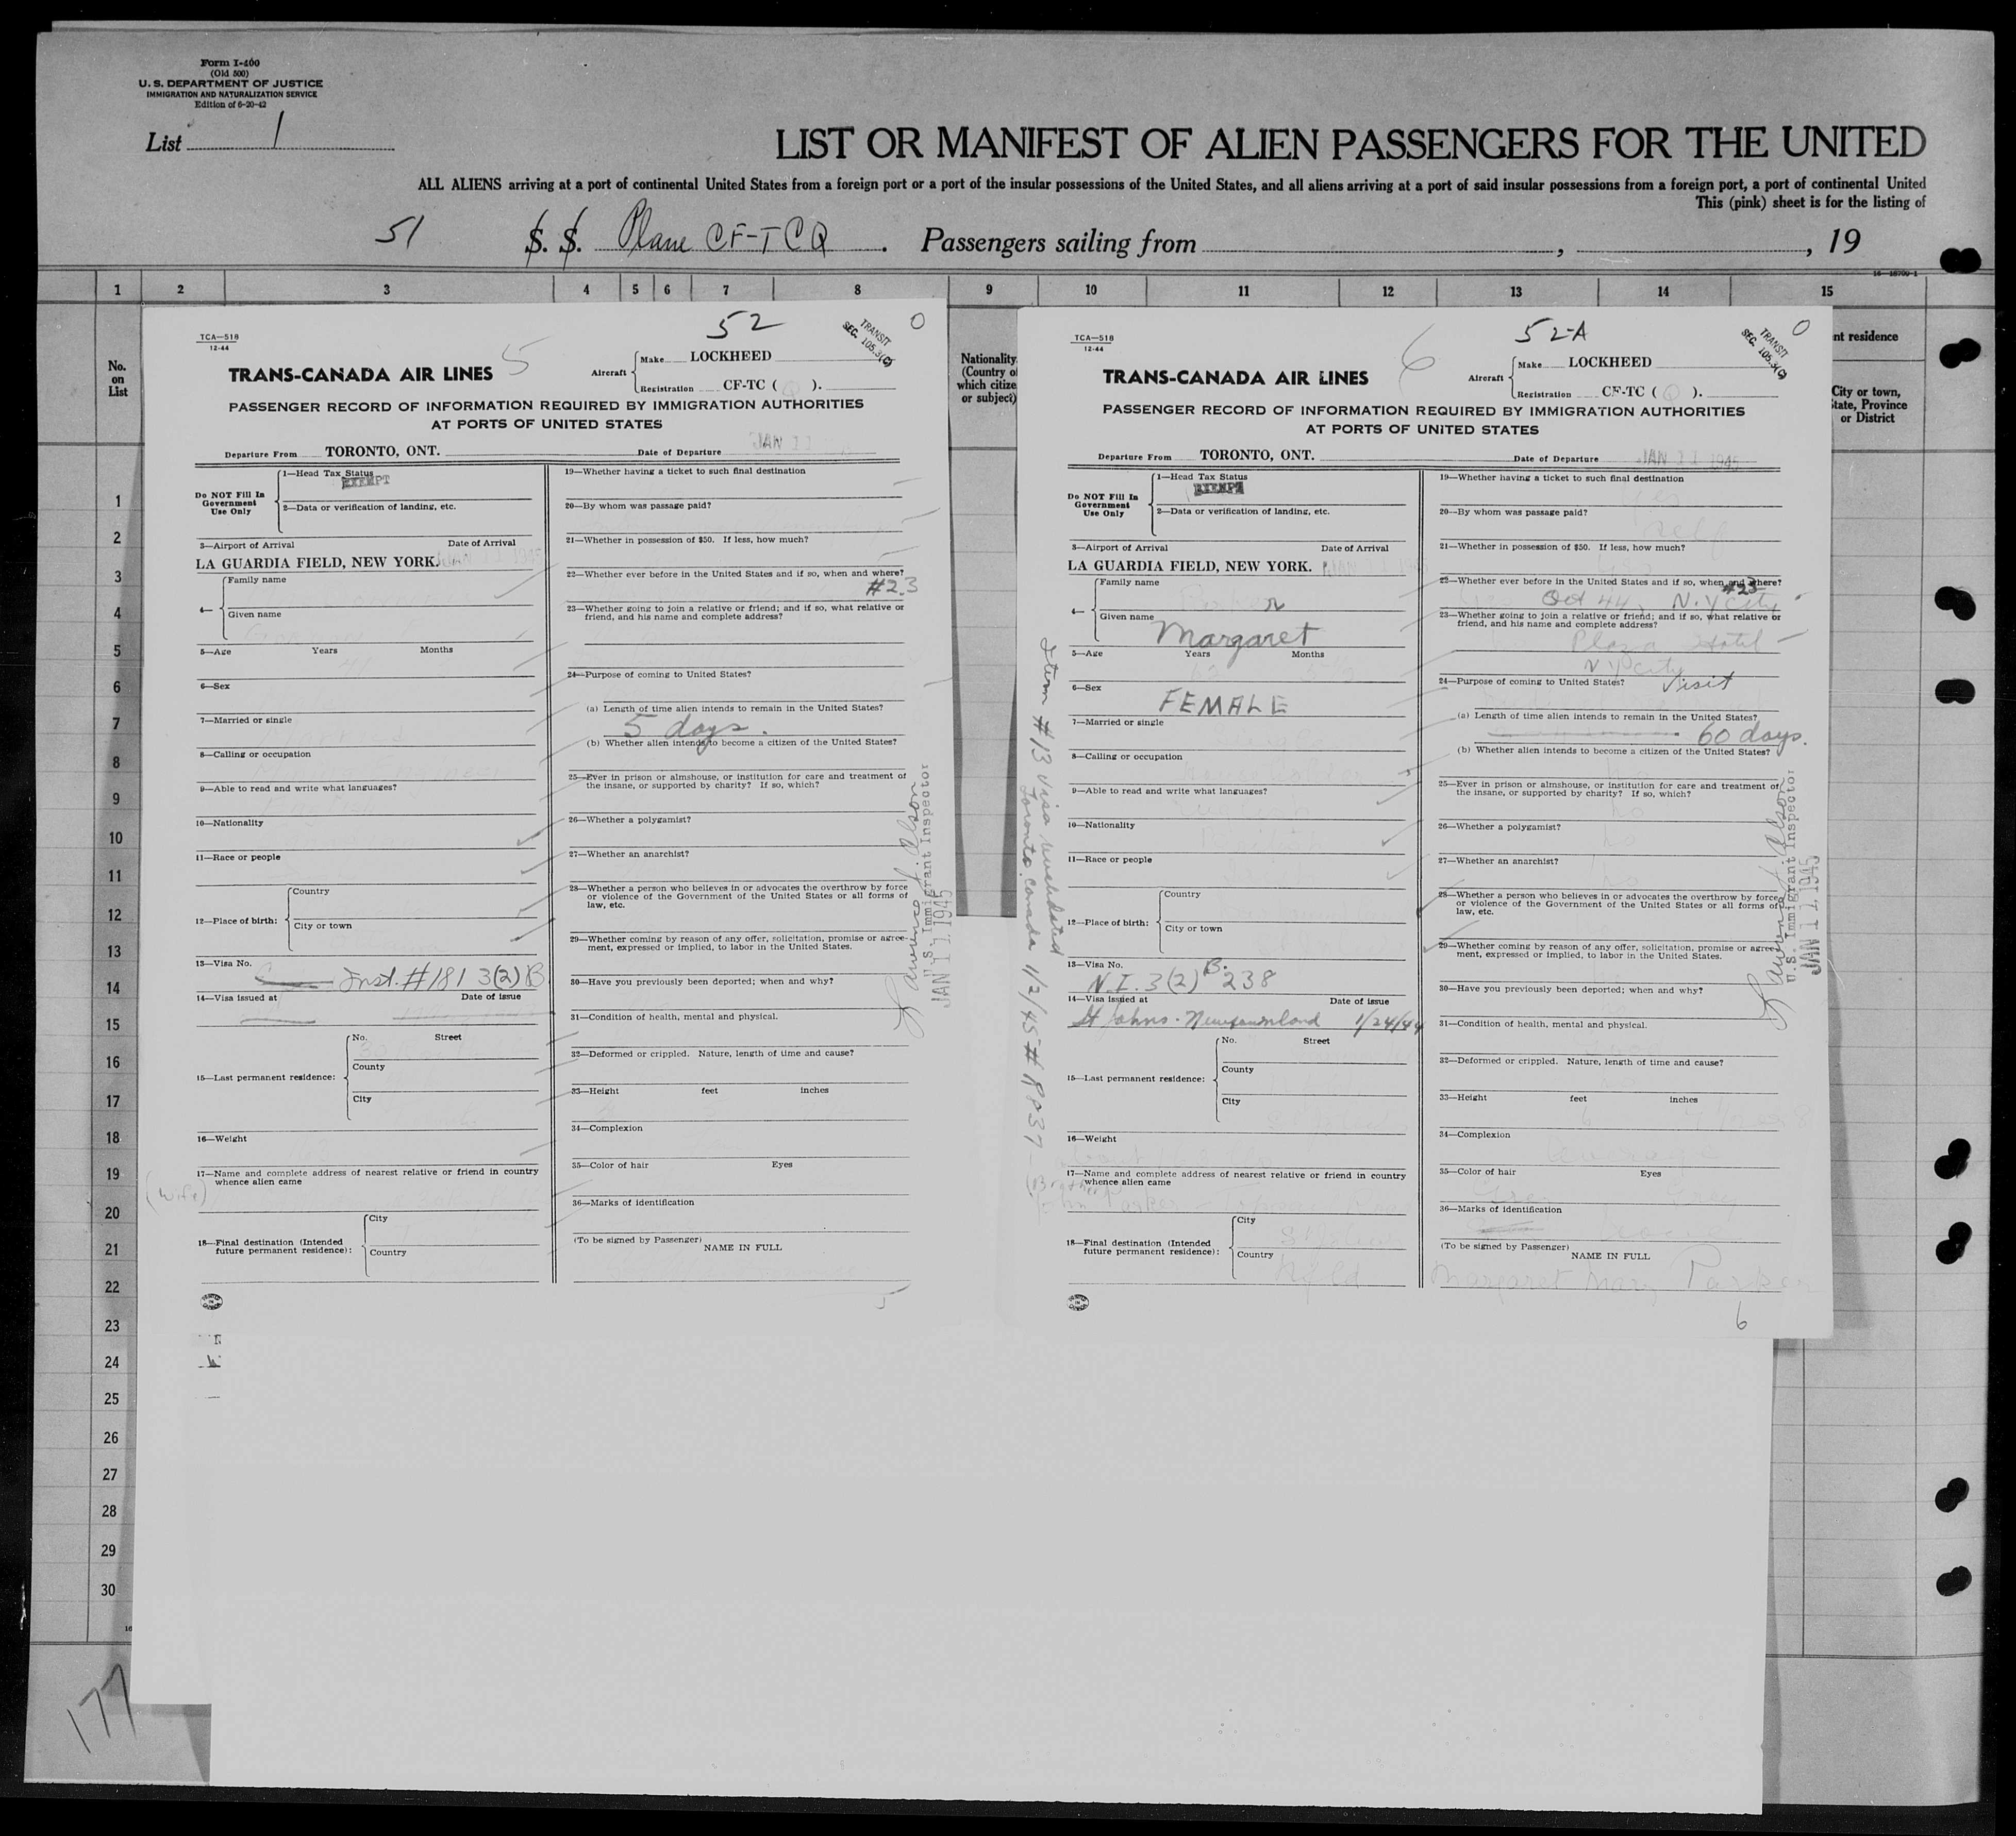 Form I-400
(Old 500)
U. S. DEPARTMENT OF JUSTICE
IMMIGRATION AND NATURALIZATION SERVICE
Edition of 6-20-42
List 1
LIST OR MANIFEST OF ALIEN PASSENGERS FOR THE UNITED
ALL ALIENS arriving at a port of continental United States from a foreign port or a port of the insular possessions of the United States, and all aliens arriving at a port of said insular possessions from a foreign port, a port of continental United
This (pink) sheet is for the listing of
51 S. S. Plane CF-TCQ. Passengers sailing from , , 19
1 2 3 4 5 6 7 8 9 10 11 12 13 14 15
No.
on
List
Nationality
(Country of
which citize
or subject)
nt residence
City or town,
tate, Province
or District
1
2
3
4
5
6
7
8
9
10
11
12
13
14
15
16
17
18
19
20
21
22
23
24
25
26
27
28
29
30
177
52
TRANSIT
SEC. 105.3(C)
0
TCA—518
12-44
5
TRANS-CANADA AIR LINES
Aircraft
Make LOCKHEED
Registration CF-TC ( Q ).
PASSENGER RECORD OF INFORMATION REQUIRED BY IMMIGRATION AUTHORITIES
AT PORTS OF UNITED STATES
Departure From TORONTO, ONT. Date of Departure JAN 11
Do NOT Fill In
Government
Use Only
1—Head Tax Status
EXEMPT
2—Data or verification of landing, etc.
3—Airport of Arrival Date of Arrival
LA GUARDIA FIELD, NEW YORK.
4—
Family name
Given name
5—Age Years Months
6—Sex
7—Married or single
8—Calling or occupation
9—Able to read and write what languages?
10—Nationality
11—Race or people
12—Place of birth:
Country
City or town
13—Visa No.
Inst. #181 3(2)B
14—Visa issued at Date of issue
15—Last permanent residence:
No. Street
County
City
16—Weight
17—Name and complete address of nearest relative or friend in country
whence alien came
(wife)
18—Final destination (Intended
future permanent residence):
City
Country
19—Whether having a ticket to such final destination
20—By whom was passage paid?
21—Whether in possession of $50. If less, how much?
22—Whether ever before in the United States and if so, when and where?
#23
23—Whether going to join a relative or friend; and if so, what relative or
friend, and his name and complete address?
24—Purpose of coming to United States?
(a) Length of time alien intends to remain in the United States?
5 days.
(b) Whether alien intends to become a citizen of the United States?
25—Ever in prison or almshouse, or institution for care and treatment of
the insane, or supported by charity? If so, which?
26—Whether a polygamist?
27—Whether an anarchist?
28—Whether a person who believes in or advocates the overthrow by force
or violence of the Government of the United States or all forms of
law, etc.
29—Whether coming by reason of any offer, solicitation, promise or agree-
ment, expressed or implied, to labor in the United States.
30—Have you previously been deported; when and why?
31—Condition of health, mental and physical.
32—Deformed or crippled. Nature, length of time and cause?
33—Height feet inches
34—Complexion
35—Color of hair Eyes
36—Marks of identification
(To be signed by Passenger)
NAME IN FULL
5
U.S. Immigrant Inspector
JAN 11 1945
52-A
TRANSIT
SEC. 105.3(C)
0
TCA—518
12-44
6
TRANS-CANADA AIR LINES
Aircraft
Make LOCKHEED
Registration CF-TC ( Q ).
PASSENGER RECORD OF INFORMATION REQUIRED BY IMMIGRATION AUTHORITIES
AT PORTS OF UNITED STATES
Departure From TORONTO, ONT. Date of Departure JAN 11 1945
Do NOT Fill In
Government
Use Only
1—Head Tax Status
EXEMPT
2—Data or verification of landing, etc.
3—Airport of Arrival Date of Arrival
LA GUARDIA FIELD, NEW YORK.
4—
Family name
Parker
Given name
Margaret
5—Age Years Months
6—Sex
FEMALE
7—Married or single
8—Calling or occupation
9—Able to read and write what languages?
10—Nationality
11—Race or people
12—Place of birth:
Country
City or town
13—Visa No.
N.I. 3(2) B. 238
14—Visa issued at Date of issue
St Johns - Newfoundland 1/24/44
15—Last permanent residence:
No. Street
County
City
16—Weight
17—Name and complete address of nearest relative or friend in country
whence alien came
(Brother)
Parker
18—Final destination (Intended
future permanent residence):
City
Country
Nfld
Item #13 Visa revalidated
Toronto Canada 1/2/45 # R837
19—Whether having a ticket to such final destination
yes
20—By whom was passage paid?
self
21—Whether in possession of $50. If less, how much?
22—Whether ever before in the United States and if so, when and where?
#23
Oct 44 N.Y City
23—Whether going to join a relative or friend; and if so, what relative or
friend, and his name and complete address?
Plaza Hotel
N Y City
24—Purpose of coming to United States? Visit
(a) Length of time alien intends to remain in the United States?
60 days.
(b) Whether alien intends to become a citizen of the United States?
25—Ever in prison or almshouse, or institution for care and treatment of
the insane, or supported by charity? If so, which?
26—Whether a polygamist?
27—Whether an anarchist?
28—Whether a person who believes in or advocates the overthrow by force
or violence of the Government of the United States or all forms of
law, etc.
29—Whether coming by reason of any offer, solicitation, promise or agree-
ment, expressed or implied, to labor in the United States.
30—Have you previously been deported; when and why?
31—Condition of health, mental and physical.
32—Deformed or crippled. Nature, length of time and cause?
33—Height feet inches
34—Complexion
35—Color of hair Eyes
36—Marks of identification
(To be signed by Passenger)
NAME IN FULL
Margaret Mary Parker
6
U.S. Immigrant Inspector
JAN 11 1945